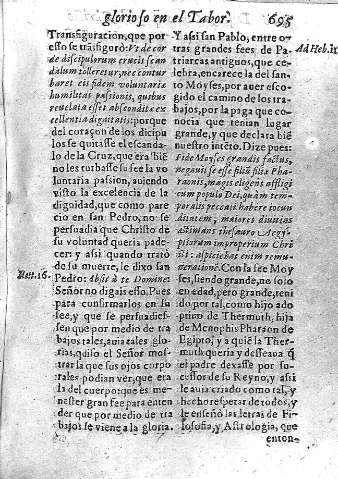 glorioso en el Tabor. 695
Transfiguracion, que por
esso se trãsfigurò: Vt de cor
de discipulorum crucis scan
dalum tolleretur, nec contur
baret eis fidem voluntariæ
humilitas passionis, quibus
reuelata esset absconditæ ex
cellentia dignitatis: porque
del coraçon de los dicipu
los se quitasse el escanda
lo de la Cruz, que era biẽ
no les turbasse su fee la vo
luntaria passion, auiendo
visto la excelencia de la
dignidad, que como pare
cio en san Pedro, no se
persuadia que Christo de
su voluntad queria pade-
cer: y assi quando tratò
de su muerte, le dixo san
Matt. 16.
Pedro: Absit à te Domine:
Señor no digais esso. Pues
para confirmarlos en su
fee, y que se persuadiessen
que por medio de tra
bajos tales, auia tales glo-
rias, quiso el Señor mos-
trar la que sus ojos corpo
rales podian ver, que era
la del cuerpo: que es me-
nester gran fee para enten
der que por medio de tra
bajos se viene a la gloria.
Y assi san Pablo, entre o-
tras grandes fees de Pa-
Ad Heb. 11
triarcas antiguos, que ce-
lebra, encarece la del san-
to Moyses, por auer esco-
gido el camino de los tra-
bajos, por la paga que co-
nocia que tenian lugar
grande, y que declara biẽ
nuestro intẽto. Dize pues:
Fide Moyses grandis factus,
negauit se esse filiũ filiæ Pha-
raonis, magis eligens affligi
cum populo Dei, quàm tem-
poralis peccati habere iocun
ditatem, maiores diuitias
æstimans thesauro Aegy-
ptiorum improperium Chri
sti: aspiciebat enim remu-
nerationẽ. Con la fee Moy
ses, siendo grande, no solo
en edad, pero grande, teni
do por tal, como hijo ado
ptiuo de Thermuth, hija
de Menophis Pharaon de
Egipto, y a quiẽ la Ther-
muth queria y desseaua q̃
el padre dexasse por su-
cessor de su Reyno, y assi
le auia criado como tal, y
hecho respetar de todos, y
le enseñò las letras de Fi-
losofia, y Astrologia, que
enton-